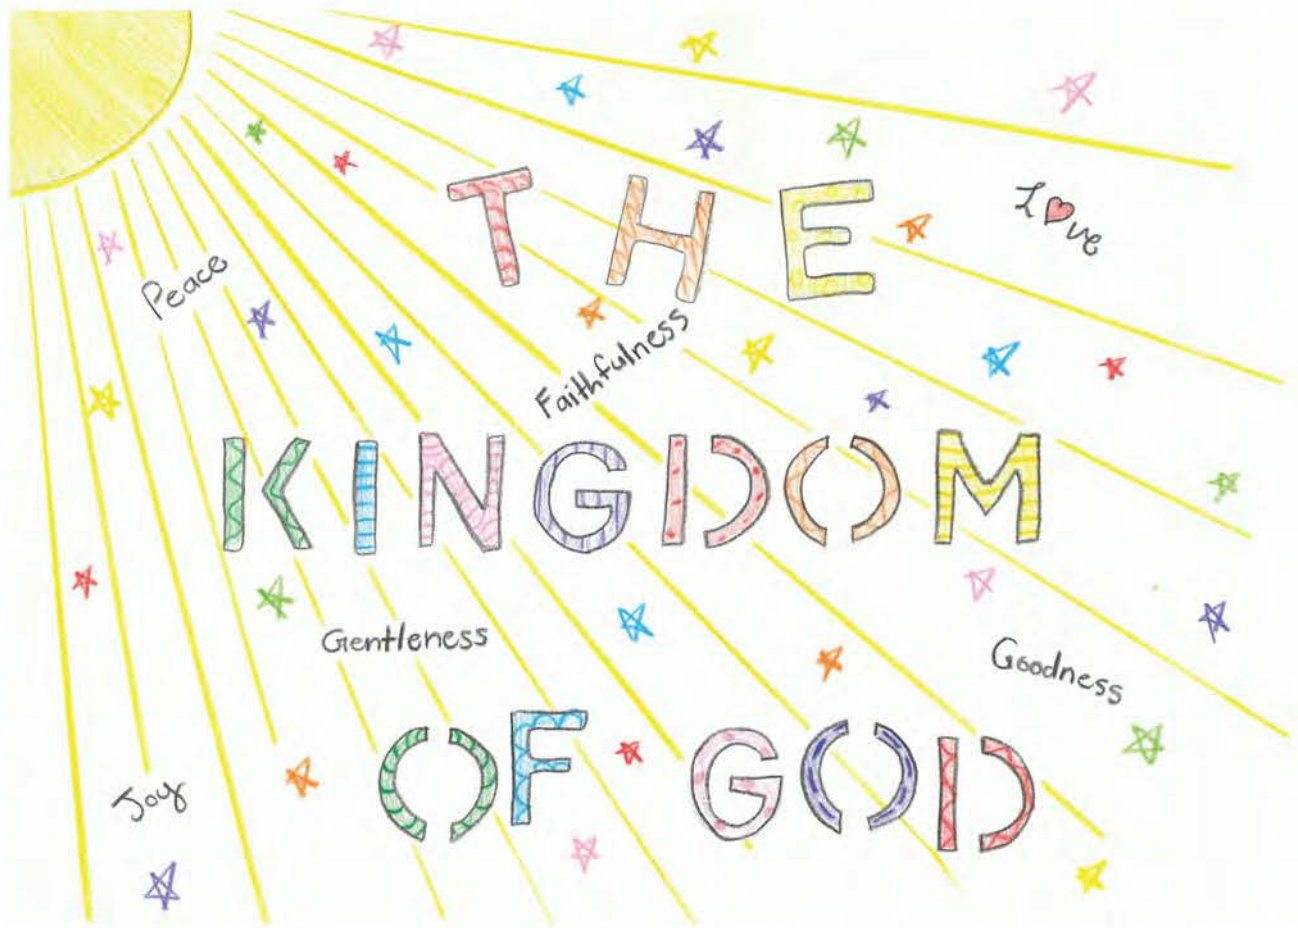 THE
Love
Peace
Faithfulness
KINGDOM
Gentleness
Goodness
OF GOD
Joy